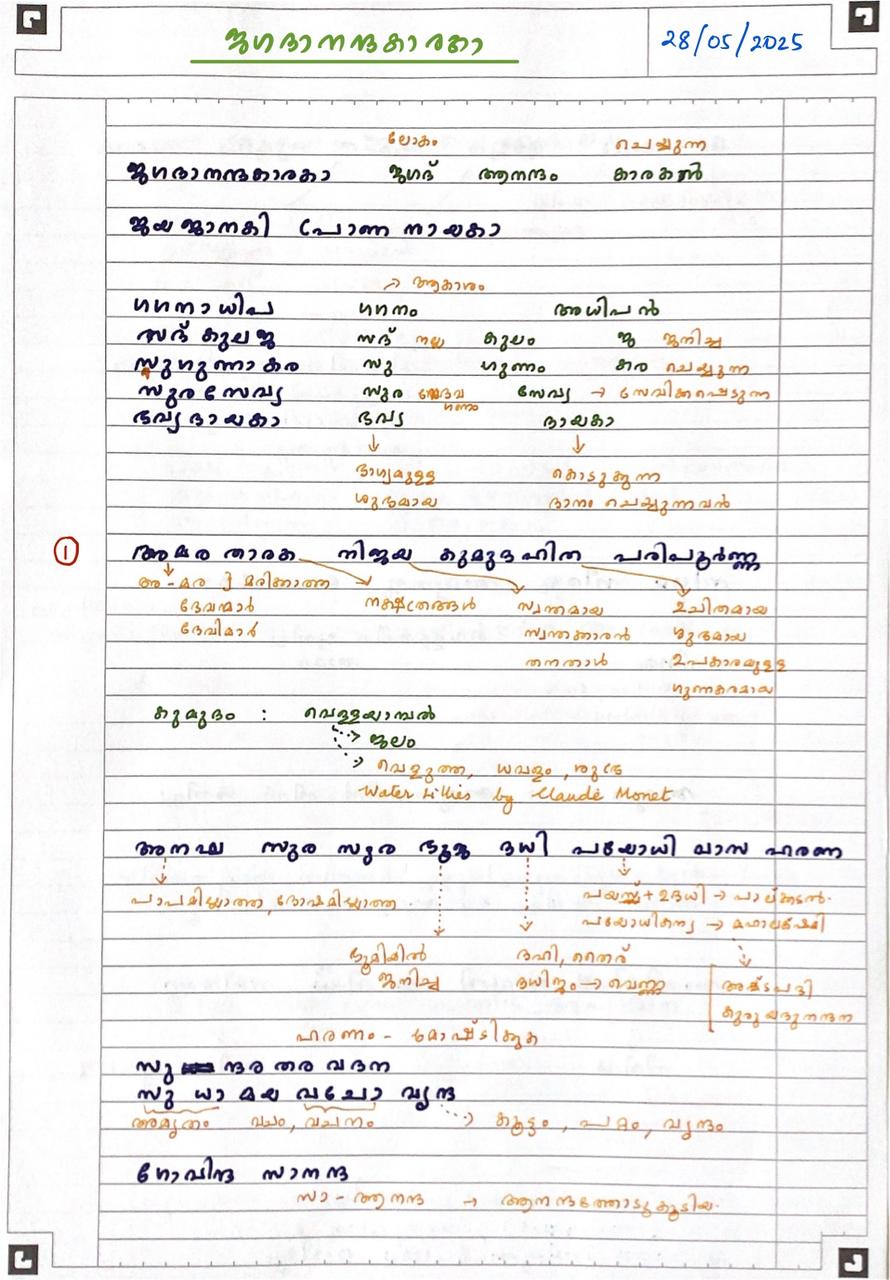 ജഗദാനന്ദകാരകാ
28/05/2025
ലോകം ചെയ്യുന്ന
ജഗദാനന്ദകാരകാ ജഗദ് ആനന്ദം കാരകൻ
ജയ ജാനകി പ്രാണ നായകാ
→ ആകാശം
ഗഗനാധിപ ഗഗനം അധിപൻ
സദ് കുലജ സദ് നല്ല കുലം ജ ജനിച്ച
സുഗുണാകര സു ഗുണം കര ചെയ്യുന്ന
സുരസേവ്യ സുര ദേവ ഗണം സേവ്യ → സേവിക്കപ്പെടുന്ന
ഭവ്യദായകാ ഭവ്യ ദായകാ
ഭാഗ്യമുള്ള കൊടുക്കുന്ന
ശുഭമായ ദാനം ചെയ്യുന്നവൻ
① അമര താരക നിജയ കുമുദഹിത പരിപൂർണ്ണ
അ-മര } മരിക്കാത്ത നക്ഷത്രങ്ങൾ സ്വന്തമായ ഉചിതമായ
ദേവന്മാർ സ്വന്തക്കാരൻ ശുഭമായ
ദേവിമാർ തനതാൾ ഉപകാരമുള്ള
ഗുണകരമായ
കുമുദം : വെള്ളയാമ്പൽ
ജലം
വെളുത്ത, ധവളം, ശുഭ്ര
Water Lillies by Claude Monet
അനഘ സുര സുര ഭൂജ ദധി പയോധി വാസ ഹരണ
പാപമില്ലാത്ത, ദോഷമില്ലാത്ത പയസ്സ് + ഉദധി → പാല്ക്കടൽ.
പയോധികന്യ → മഹാലക്ഷ്മി
ഭൂമിയിൽ ദഹി, തൈര്
ജനിച്ച ദധിജം → വെണ്ണ അഷ്ടപദി
കുരുയദുനന്ദന
ഹരണം - മോഷ്ടിക്കുക
സു ന്ദര തര വദന
സുധാമയ വചോ വൃന്ദ
അമൃതം വചം, വചനം കൂട്ടം, വൃന്ദം
ഗോവിന്ദ സാനന്ദ
സാ-ആനന്ദ → ആനന്ദത്തോടുകൂടിയ.